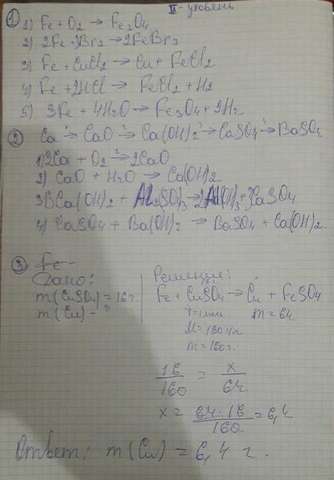 II - уровень
① 1) Fe + O₂ → Fe₃O₄
2) 2Fe + 3Br₂ → 2FeBr₃
3) Fe + CuCl₂ → Cu + FeCl₂
4) Fe + 2HCl → FeCl₂ + H₂
5) 3Fe + 4H₂O → Fe₃O₄ + 4H₂
② Ca → CaO → Ca(OH)₂ → CaSO₄ → BaSO₄
1) 2Ca + O₂ → 2CaO
2) CaO + H₂O → Ca(OH)₂
3) 3Ca(OH)₂ + Al₂(SO₄)₃ → 2Al(OH)₃ + 3CaSO₄
4) CaSO₄ + Ba(OH)₂ → BaSO₄ + Ca(OH)₂
③ Fe -
Дано:
m(CuSO₄) = 16 г
m(Cu) - ?
Решение:
Fe + CuSO₄ → Cu + FeSO₄
m = 64
m = 160 г
16/160 = x/64
x = 64 · 16/160 = 6,4
Ответ: m(Cu) = 6,4 г.